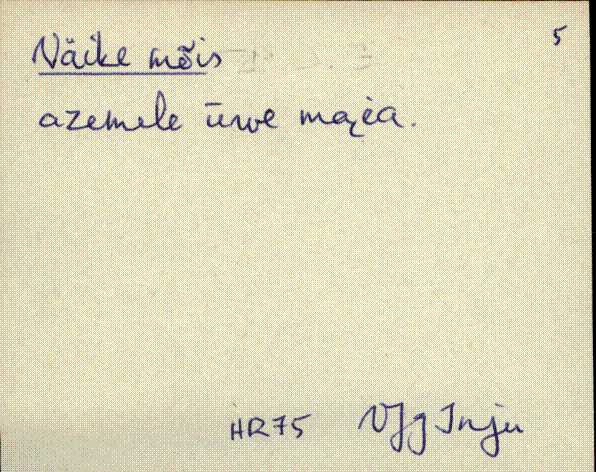 5
Näike mõis
azemele ūrve mai̯ea.
HR75 VJg Inju